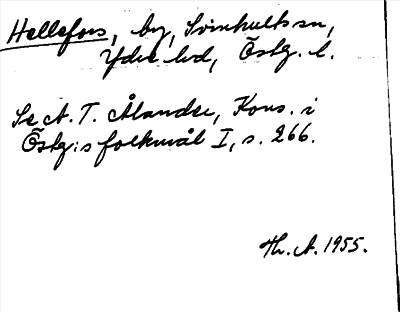 Hellefors, by, Svinhults sn,
Ydre hd, Östg. l.
Se A. T. Ålander, Kons. i
Östg:s folkmål I, s. 266.
Th. A. 1955.